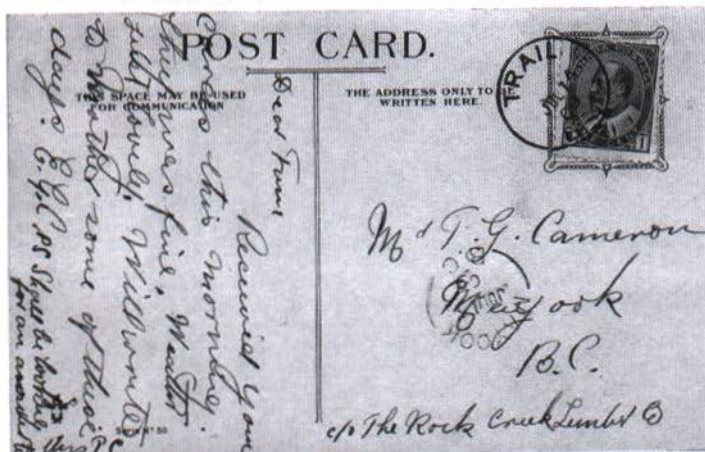 POST CARD.
THIS SPACE MAY BE USED
FOR COMMUNICATION
THE ADDRESS ONLY TO BE
WRITTEN HERE.
TRAIL
Dear
Received your
this morning.
they was fine, Weather
still lovely. Will write
to Mother some of these
days. E.G.C. PS Shall be looking
for an answer to this
Mr T. G. Cameron
Mayook
B.C.
c/o The Rock Creek Lumbr Co